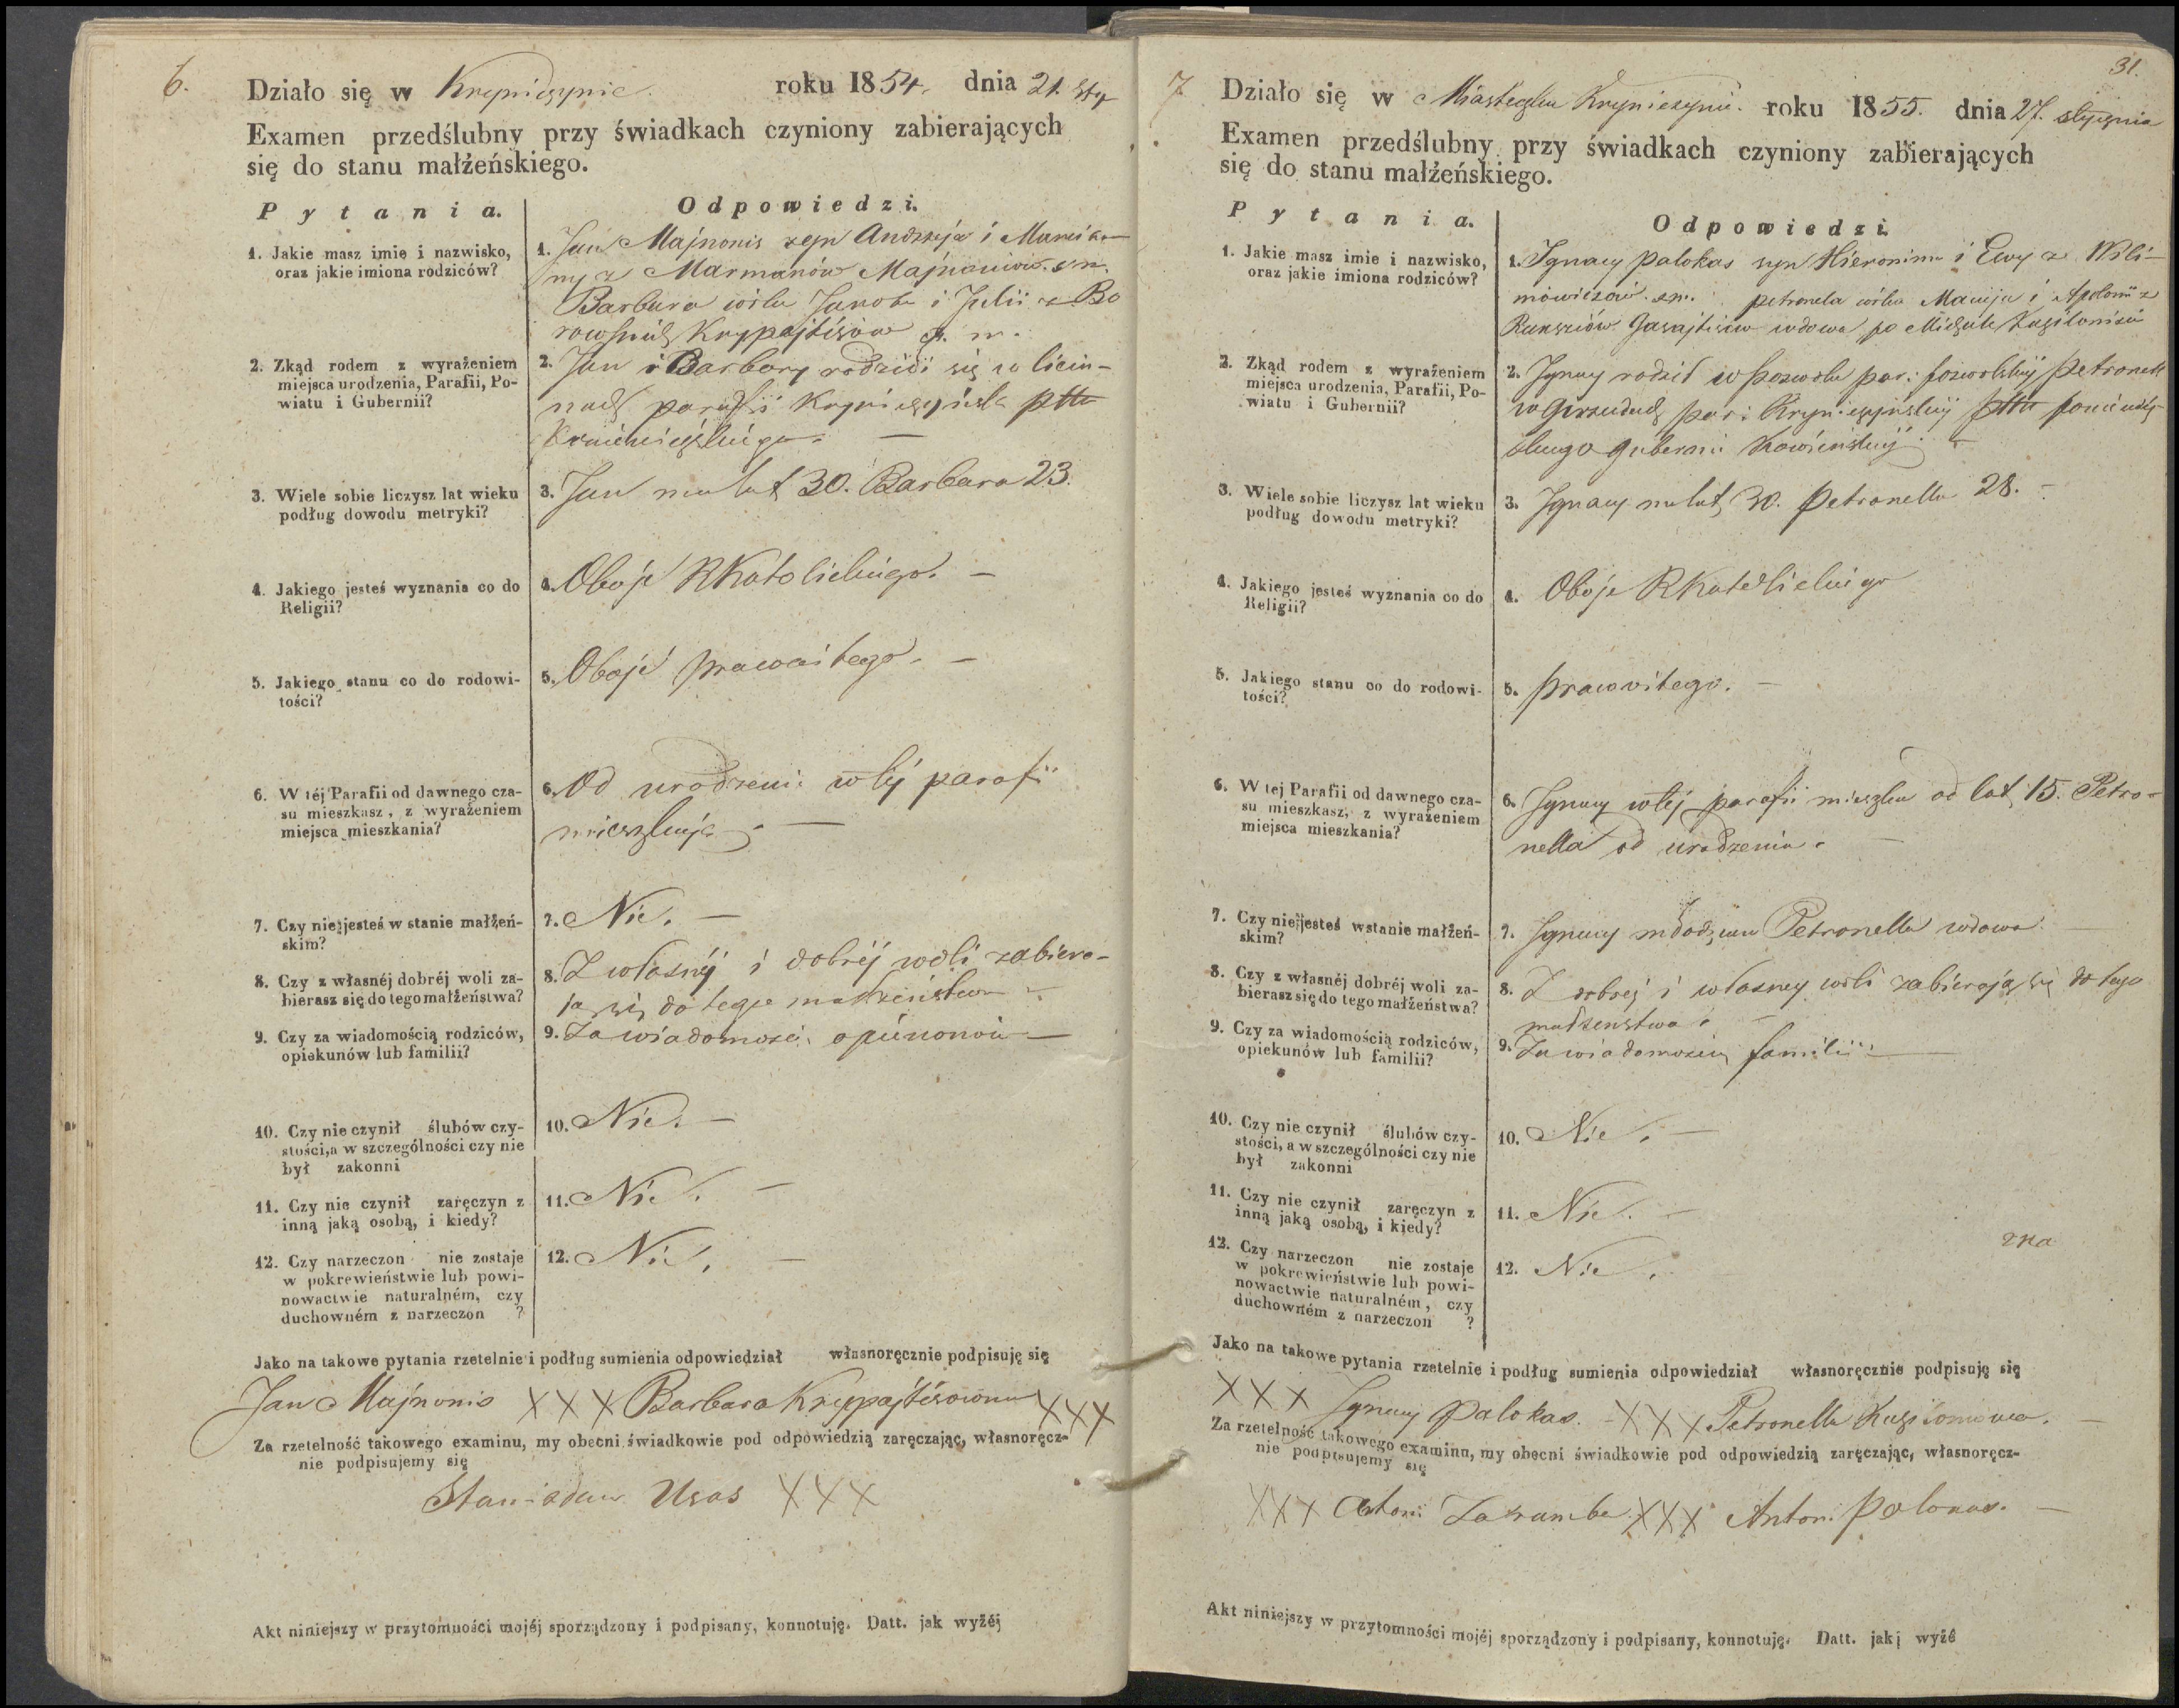 6.
Działo się w Krynicynie. roku 1854. dnia 21. sty
Examen przedślubny przy świadkach czyniony zabierających
się do stanu małżeńskiego.
Pytania.
Odpowiedzi.
1. Jakie masz imie i nazwisko,
oraz jakie imiona rodziców?
1. Jan Majnonis syn Andrzeja i Marcian-
ny z Marmanów Majnoniow. s m.
Barbara córka Jakoba i Julii z Bo
2. Zkąd rodem z wyrażeniem
miejsca urodzenia, Parafii, Po-
wiatu i Gubernii?
2. Jan i Barbary rodzili się w
parafii pttu
3. Wiele sobie liczysz lat wieku
podług dowodu metryki?
3. Jan ma lat 30. Barbara 23.
4. Jakiego jesteś wyznania co do
Religii?
4. Oboje RKatolickiego. —
5. Jakiego stanu co do rodowi-
tości?
5. Oboje prawoitego. —
6. W téj Parafii od dawnego cza-
su mieszkasz, z wyrażeniem
miejsca mieszkania?
6. Od urodzenia w tej parafii
mieszkują. —
7. Czy nie jesteś w stanie małżeń-
skim?
7. Nie. —
8. Czy z własnéj dobréj woli za-
bierasz się do tego małżeństwa?
8. Z własnéj i dobréj woli zabiera-
ja się do tego małżeństwa —
9. Czy za wiadomością rodziców,
opiekunów lub familii?
9. Za wiadomości opiekonow —
10. Czy nie czynił ślubów czy-
stości, a w szczególności czy nie
był zakonni
10. Nie. —
11. Czy nie czynił zaręczyn z
inną jaką osobą, i kiedy?
11. Nie. —
12. Czy narzeczon nie zostaje
w pokrewieństwie lub powi-
nowactwie naturalném, czy
duchowném z narzeczon ?
12. Nie. —
Jako na takowe pytania rzetelnie i podług sumienia odpowiedział własnoręcznie podpisuję się
Jan Majnonis XXX Barbara Kryppajtisowna XXX
Za rzetelność takowego examinu, my obecni świadkowie pod odpowiedzią zaręczając, własnoręcz-
nie podpisujemy się
Stanisław Usas XXX
Akt niniejszy w przytomności mojéj sporządzony i podpisany, konnotuję. Datt. jak wyżéj
31.
7
Działo się w Miasteczku Krynicczynie. roku 1855. dnia 27. stycznia
Examen przedślubny przy świadkach czyniony zabierających
się do stanu małżeńskiego.
Pytania.
Odpowiedzi.
1. Jakie masz imie i nazwisko,
oraz jakie imiona rodziców?
1. Ignacy Palokas syn Hieronima i Ewy z Wili-
mowiczow. s m. Petronela córka Macieja i Apolonii z
wdowa po
2. Zkąd rodem z wyrażeniem
miejsca urodzenia, Parafii, Po-
wiatu i Gubernii?
2. Ignacy rodził w Pozwolu par: pozwolskiej Petronell
par: pttu
guberni Kowieńskiej. —
3. Wiele sobie liczysz lat wieku
podług dowodu metryki?
3. Ignacy ma lat 30. Petronella 28. —
4. Jakiego jesteś wyznania co do
Religii?
4. Oboje RKatolickiego
5. Jakiego stanu co do rodowi-
tości?
5. prawoitego. —
6. W tej Parafii od dawnego cza-
su mieszkasz, z wyrażeniem
miejsca mieszkania?
6. Ignacy w tej parafii mieszka od lat 15. Petro-
nella od urodzenia. —
7. Czy nie jesteś wstanie małżeń-
skim?
7. Ignacy młodzian Petronella wdowa —
8. Czy z własnéj dobréj woli za-
bierasz się do tego małżeństwa?
8. Z dobrej i własney woli zabierają się do tego
małżeństwa. —
9. Czy za wiadomością rodziców,
opiekunów lub familii?
9. Za wiadomością familii —
10. Czy nie czynił ślubów czy-
stości, a w szczególności czy nie
był zakonni
10. Nie. —
11. Czy nie czynił zaręczyn z
inną jaką osobą, i kiedy?
11. Nie. —
12. Czy narzeczon nie zostaje
w pokrewieństwie lub powi-
nowactwie naturalném, czy
duchowném z narzeczon ?
12. Nie.
zna
Jako na takowe pytania rzetelnie i podług sumienia odpowiedział własnoręcznie podpisuję się
XXX Ignacy Palokas. XXX Petronella
Za rzetelność takowego examinu, my obecni świadkowie pod odpowiedzią zaręczając, własnoręcz-
nie podpisujemy się
XXX Antoni Zaramba XXX Antoni Polokas. —
Akt niniejszy w przytomności mojéj sporządzony i podpisany, konnotuję. Datt. jakj wyżé